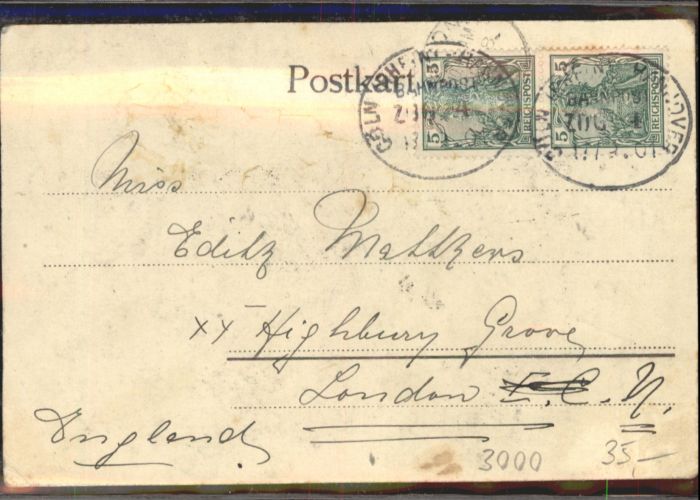 Postkart
5 REICHSPOST 5
5 REICHSPOST 5
CÖLN HANNOVER
BAHNPOST
ZUG 4
Miss
Edith Matthews
XX Highbury Grove
London E.C. N.
England
3000 35,-